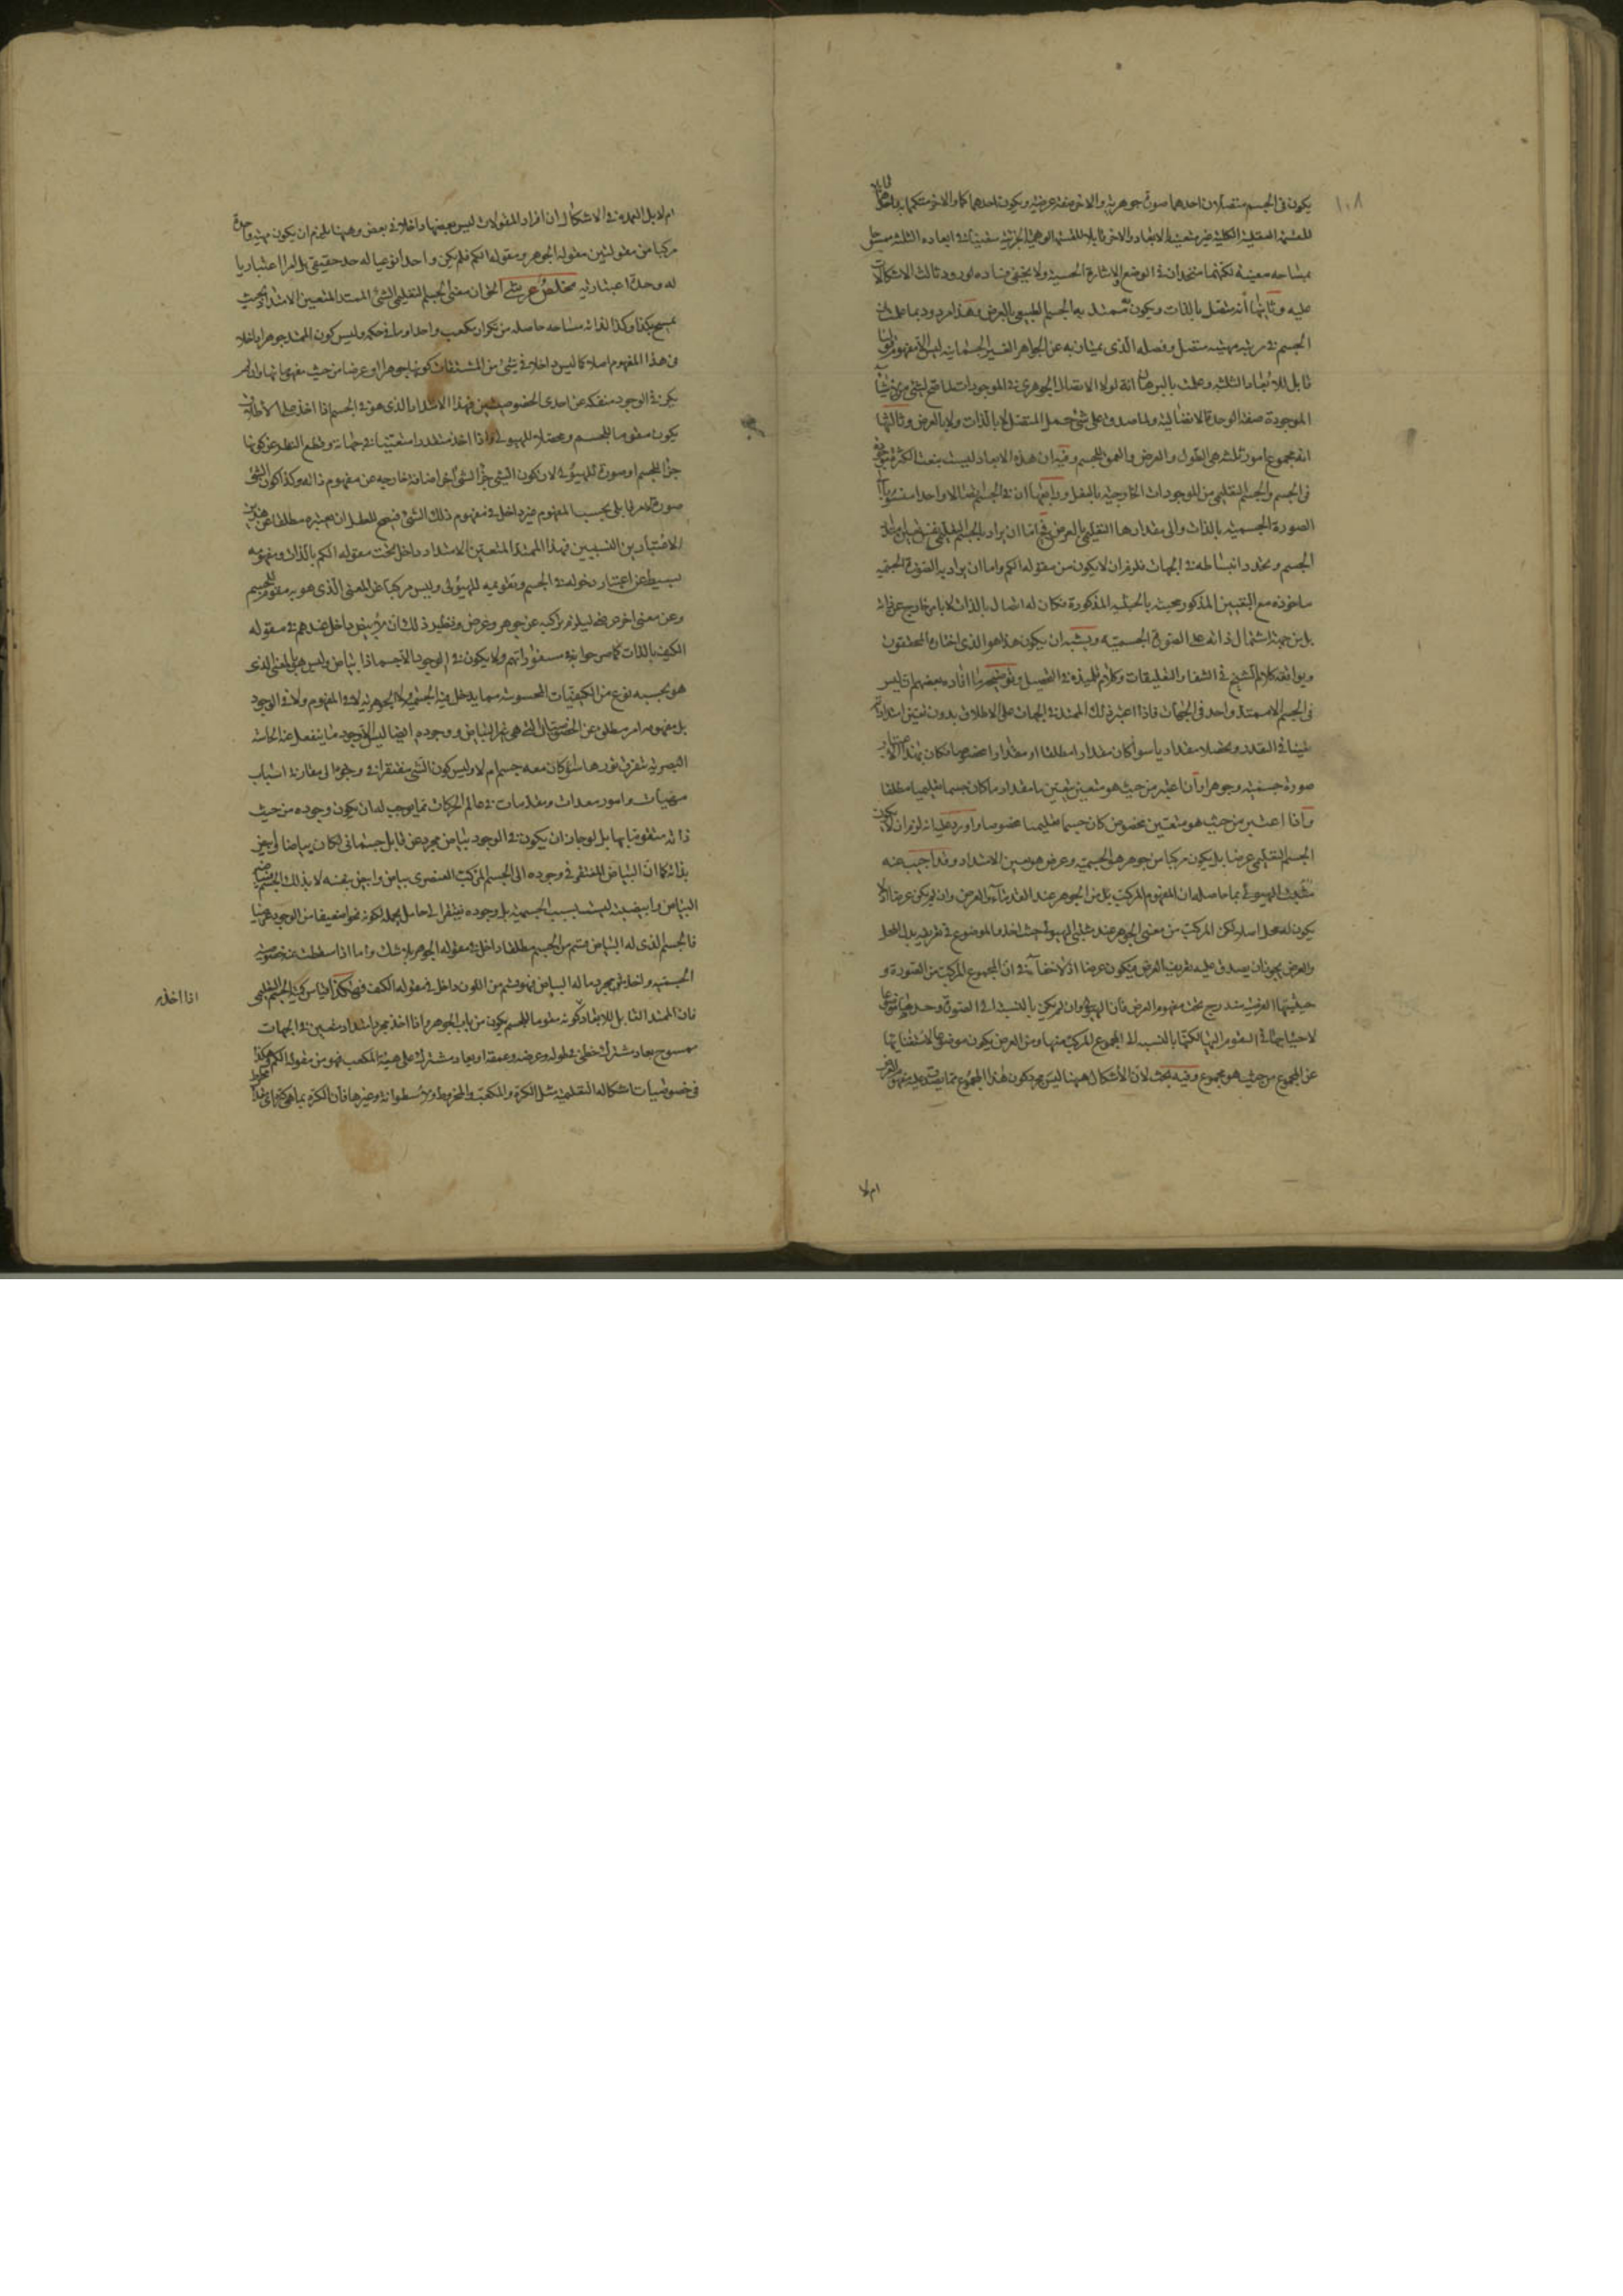 ١٠٨
يكون في الجسم متصلان احدهما صورة جوهرية والاخر صفة عرضية ويكون احدهما كما والاخر متكمما به
للقسمة العقلية الكلية غير متعينة الابعاد والاخر قابلا للقسمة الوهمية الجزئية متعينا في ابعاده الثلثة ممسوحا
بمساحة معينة لكنهما متحدان في الوضع والاشارة الحسية ولا يخفى فساده لورود ثالث الاشكالات
عليه وثانيها أنه متصل بالذات ويكون ممتد به الجسم الطبيعي بالعرض وهذا مردود بما علمت ان
الجسم في مرتبة مهيته متصل وفصله الذي يمتاز به عن الجواهر الغير الجسمانية ليس الا مفهوم قولنا
قابل للابعاد الثلثة وعلمت بالبرهان انه لولا الاتصال الجوهري في الموجودات لما صح لشئ
الموجودة صفة الوحدة الاتصالية ولما صدق على شئ حمل المتصل لا بالذات ولا بالعرض وثالثها
انه مجموع امور ثلثة هي الطول والعرض والعمق للجسم وفيه ان هذه الابعاد ليست بنعت الكثرة موجودة
في الجسم والجسم التعليمي من الموجودات الخارجية بالفعل ورابعها ان في الجسم اتصالا واحدا منسوبا الى
الصورة الجسمية بالذات والى مقدارها التعليمي بالعرض فح اما ان يراد بالجسم التعليمي نفس
الجسم وتحدد انبساطه في الجهات فلزم ان لا يكون من مقولة الكم واما ان يراد به الصورة الجسمية
ماخوذة مع التعين المذكور محيثة بالحيثية المذكورة فكان له اتصال بالذات لا بامر خارج عن ذاته
بل من جهة اشتمال ذاته على الصورة الجسمية ويشبه ان يكون هذا هو الذي اختاره المحققون
ويوافقه كلام الشيخ في الشفا والتعليقات وكلام تلميذه في التحصيل وتوضيحه ما افاده بعضهم ان ليس
في الجسم الا ممتد واحد في الجهات فاذا اعتبر ذلك الممتد في الجهات على الاطلاق بدون تعين امتداداته
تعينا في القدر وتحصلا مقداريا سواء كان مقدارا مطلقا او مقدارا مخصوصا فكان بهذا الاعتبار
صورة جسمية وجوهرا وان اعتبر من حيث هو متعين بتعين ما مقدار ما كان جسما تعليميا مطلقا
واذا اعتبر من حيث هو متعين مخصوص كان جسما تعليميا مخصوصا واورد عليه انه لزم ان لا يكون
الجسم التعليمي عرضا بل يكون مركبا من جوهر هو الجسمية وعرض هو تعين الامتداد وقد اجيب عنه
بما حاصله ان المفهوم المركب بل من الجوهر عند القدماء من العرض وان لم يكن عرضا اذ لا
يكون له محل اصلا لكن المركب من معنى الجوهر عند مثبتي الهيولى حيث اخذوا الموضوع في تعريفه بدل المحل
والعرض يجوز ان يصدق عليه تعريف العرض فيكون عرضا اذ لا خفاء في ان المجموع المركب من الصورة و
حيثيتها العرضية مندرج تحت مفهوم العرض فان الهيولى وان لم يكن بالنسبة الى الصورة وحدها موضوعا
لاحتياجها في التقوم اليها لكنها بالنسبة الى المجموع المركب منها ومن العرض يكون موضوعا لاستغنائها
عن المجموع من حيث هو مجموع وفيه بحث لان الاشكال ههنا ليس مجرد كون هذا المجموع مما يصدق عليه مفهوم العرض
ام لا
ام لا بل العمدة في الاشكال ان افراد المقولات ليس بعضها داخلا في بعض وههنا يلزم ان يكون مهية واحدة
مركبا من مقولتين مقولة الجوهر ومقولة الكم فلم يكن واحدا نوعيا له حد حقيقي بل امرا اعتباريا
له وحدة اعتبارية مخلص عرشي الحق ان معنى الجسم التعليمي الشئ الممتد المتعين الامتداد بحيث
يمسح بكذا وكذا لذاته مساحة حاصلة من تكرار مكعب واحد او ما في حكمه وليس كون الممتد جوهرا داخلا
في هذا المفهوم اصلا كما ليس داخلا في شئ من المشتقات كونها جوهرا او عرضا من حيث مفهوماتها وان لم
يكن في الوجود منفكة عن احدى الخصوصيتين فهذا الامتداد الذي هو في الجسم اذا اخذ على الاطلاق
يكون مقوما للجسم ومحصلا للهيولى واذا اخذ متقدرا متعينا في جهاته وقطع النظر عن كونها
جزأ للجسم او صورة للهيولى لان كون الشئ جزأ لشئ آخر اضافة خارجة عن مفهوم ذاته وكذا كون الشئ
صورة لامر قابل بحسب المفهوم غير داخل في مفهوم ذلك الشئ فيصح للعقل ان يعتبره مطلقا عن هذين
الاعتبارين النسبيين فهذا الممتد المتعين الامتداد داخل تحت مقولة الكم بالذات ومفهومه
بسيط عن اعتبار دخوله في الجسم وتقويمه للهيولى وليس مركبا عن المعنى الذي هو به مقوم للجسم
وعن معنى اخر عرضي ليلزم تركبه عن جوهر وعرض ونظير ذلك ان الابيض داخل عندهم في مقولة
الكيف بالذات كما صرحوا به في مسفوراتهم ولا يكون في الوجود الا جسما ذا بياض وليس هذا المعنى الذي
هو بحسبه نوع من الكيفيات المحسوسة مما يدخل فيه الجسمية ولا الجوهرية لا في المفهوم ولا في الوجود
بل مفهومه امر مطلق عن الخصوصيات التي هي غير البياض ووجوده ايضا ليس الا وجود ما ينفعل عنه الحاسة
البصرية بتفرق نورها سواء كان معه جسم ام لا وليس كون الشئ مفتقرا في وجوده الى مقارنة اسباب
مهيئات وامور معدات ومقدمات في عالم الحركات مما يوجب له ان يكون وجوده من حيث
ذاته متقوما بها بل لو جاز ان يكون في الوجود بياض مجرد عن قابل جسماني لكان بياضا وابيض
بذاته كما ان البياض المفتقر في وجوده الى الجسم المركب العنصري بياض وابيض بنفسه لا بذلك الجسم
البياض وابيضيته ليست بسبب الجسمية بل وجوده يفتقر الى حامل يحمله لكونه نحوا ضعيفا من الوجود عرضيا
فالجسم الذي له البياض قسم من الجسم مطلقا داخل في مقولة الجوهر بلا شك واما اذا اسقطت عنه خصوصية
الجسمية واخذ شئ مجرد ما له البياض فهو قسم من اللون داخل في مقولة الكيف فهكذا القياس كمية الجسم التعليمي
اذا اخذه
فان الممتد القابل للابعاد كونه مقوما للجسم يكون من باب الجوهر واذا اخذ مجرد امتداد متعين في الجهات
ممسوح بعاد مشترك خطي في طوله وعرضه وعمقه او بعاد مشترك على هيئة المكعب فهو من مقولة الكم وهكذا
في خصوصيات اشكاله التعليمية مثل الكرة والمكعب والمخروط والاسطوانة وغيرها فان الكرة بما هي كرة